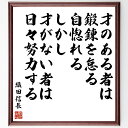 才のある者は
鍛錬を怠る
自惚れる
しかし
才がない者は
日々努力する
織田信長